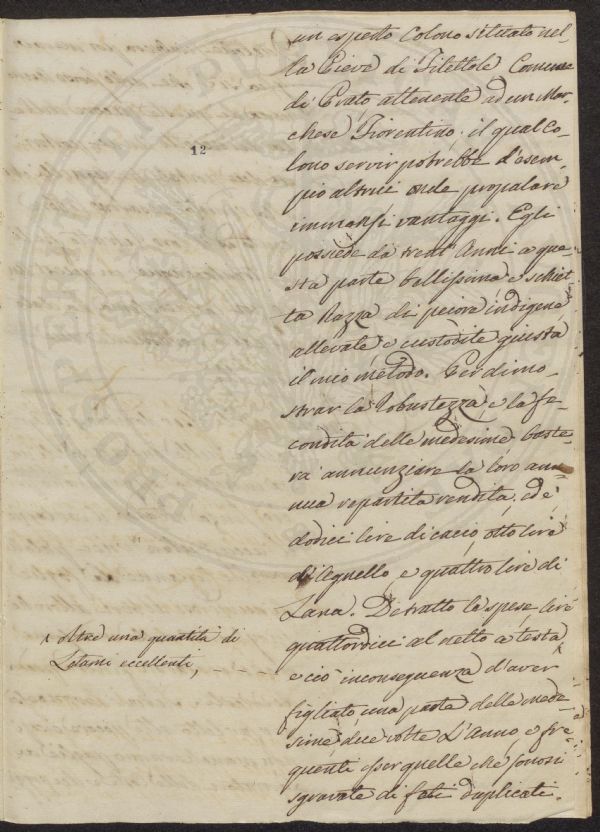 12
un esperto Colono situato nel-
la Pieve di Filettole Comune
di Prato attenente ad un Mar-
chese Fiorentino. il qual Co-
lono servir potrebbe d'esem-
pio altrui onde propalare
immensi vantaggi. Egli
possiede da trent'Anni a que-
sta parte bellissima e schiet-
ta Razza di pecore indigene
allevate e custodite giusta
il mio metodo. Per dimo-
strar la Robustezza, e la fe-
condità delle medesime, baste-
rà annunziare la loro an-
nua repartita rendita, ed è,
dodici lire di cacio, otto lire
di Agnello e quattro lire di
Lana. Detratto le spese, lire
quattordici al netto a testa
^ oltre una quantità di
Letami eccellenti,
e ciò inconseguenza d'aver
figliato una parte delle mede-
sime due volte L'Anno, e fre-
quenti esser quelle che sonosi
sgravate di feti duplicati.